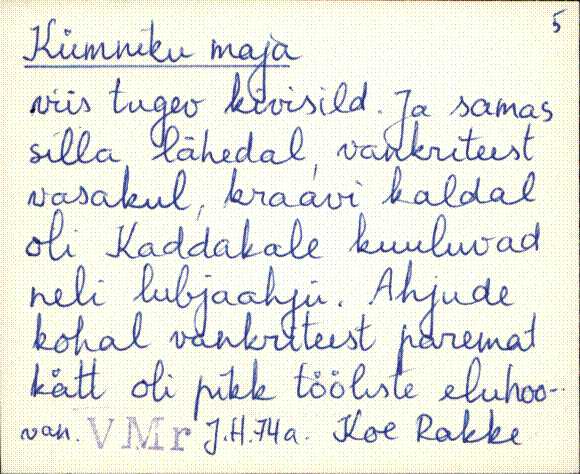 5
Kümniku maja
viis tugev kivisild. Ja samas
silla lähedal, vankriteest
vasakul, kraavi kaldal
oli Kaddakale kuuluvad
neli lubjaahju. Ahjude
kohal vankriteest paremat
kätt oli pikk tööliste eluhoo-
van. VMr J.H.74a. Koe Rakke